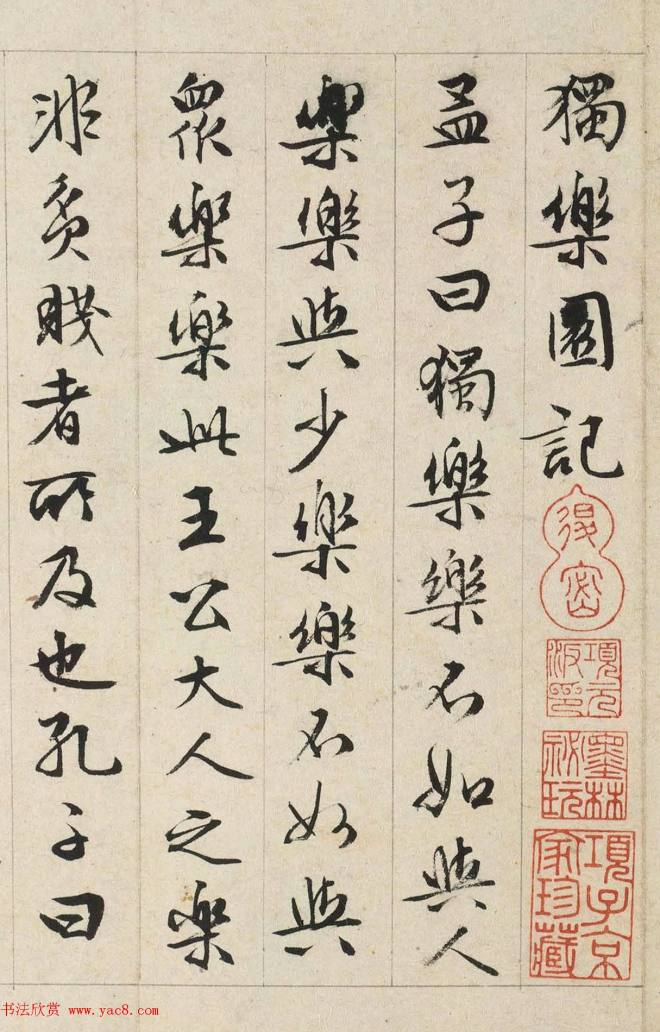 獨樂園記
孟子曰獨樂樂不如與人
樂樂與少樂樂不如與
衆樂樂此王公大人之樂
非貧賤者所及也孔子曰
項元汴印
墨林祕玩
項子京家珍藏
书法欣赏 www.yac8.com